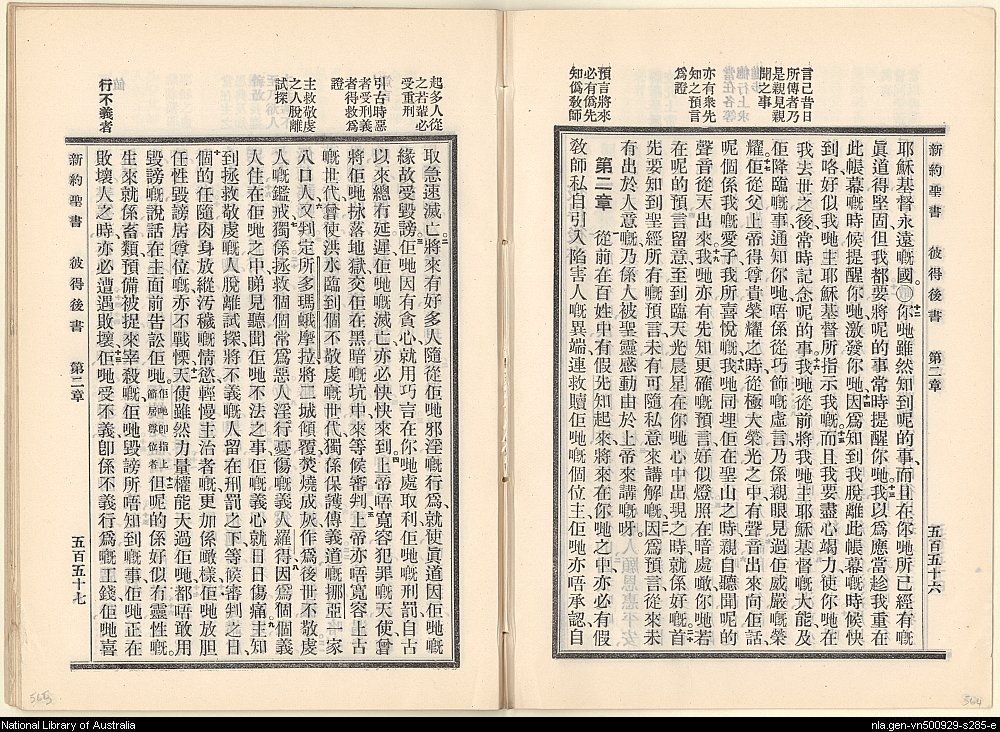 新約聖書 彼得後書 第二章 五百五十六
耶穌基督永遠嘅國。你哋雖然知到呢的事、而且在你哋所已經有嘅
眞道得堅固但我都要將呢的事常時提醒你哋。我以爲應當趁我重在
此帳幕嘅時候提醒你哋激發你哋、因爲知到我脫離此帳幕嘅時候快
到咯好似我哋主耶穌基督所指示我嘅、而且我要盡心竭力使你哋在
我去世之後常時記念呢的事。我哋從前將我哋主耶穌基督嘅大能及
佢降臨嘅事通知你哋唔係從巧飾嘅虛言乃係親眼見過佢威嚴嘅榮
耀。佢從父上帝得尊貴榮耀之時從極大榮光之中有聲音出來向佢話、
呢個係我嘅愛子我所喜悅嘅。我哋同埋佢在聖山之時、親自聽聞呢的
聲音從天出來。我哋亦有先知更確嘅預言好似燈照在暗處噉你哋若
在呢的預言留意至到臨天光晨星在你哋心中出現之時就係好嘅。首
先要知到聖經所有嘅預言未有可隨私意來講解嘅。因爲預言從來未
有出於人意嘅乃係人被聖靈感動由於上帝來講嘅呀。
第二章 從前在百姓中有假先知起來將來在你哋之中亦必有假
敎師私自引入陷害人嘅異端連救贖佢哋嘅個位主佢哋亦唔承認自
言己昔日
所傳者乃
是親見親
聞之事
亦有衆先
知之預言
爲證
預言將來
必有僞先
知僞敎師
取急速滅亡。將來有好多人隨從佢哋邪淫嘅行爲、就使眞道因佢哋嘅
緣故受毀謗佢哋因有貪心就用巧言在你哋處取利佢哋嘅刑罰自古
以來總冇延遲佢哋嘅滅亡亦必快快來到。上帝唔寬容犯罪嘅天使曾
將佢哋抹落地獄交佢在黑暗嘅坑中來等候審判。上帝亦唔寬容上古
嘅世代曾使洪水臨到個不敬虔嘅世代獨係保護傳義道嘅挪亞一家
八口人。又判定所多瑪蛾摩拉將二城傾覆焚燒成灰作爲後世不敬虔
人嘅鑑戒、獨係拯救個個常爲惡人淫行憂傷嘅義人羅得、因爲個個義
人住在佢哋之中睇見聽聞佢哋不法之事佢嘅義心就日日傷痛。主知
到拯救敬虔嘅人脫離試探將不義嘅人留在刑罰之下等候審判之日
個的任隨肉身放縱汚穢嘅情慾輕慢主治者嘅更加係噉樣佢哋放胆
任性毀謗居尊位嘅亦不戰慄。天使雖然力量權能大過佢哋都唔敢用
毀謗嘅說話在主面前告訟佢哋佢哋卽指上節居尊位者但呢的係好似冇靈性嘅
生來就係畜類預備被捉來宰殺嘅佢哋毀謗所唔知到嘅事佢哋正在
敗壞人之時亦必遭遇敗壞佢哋受不義卽係不義行爲嘅工錢佢哋喜
新約聖書 彼得後書 第二章 五百五十七
起多人從
之若輩必
受重刑
引古時惡
者受刑義
者得救爲
證
主救敬虔
之人脫離
試探
行不義者
565
564
National Library of Australia
nla.gen-vn500929-s285-e